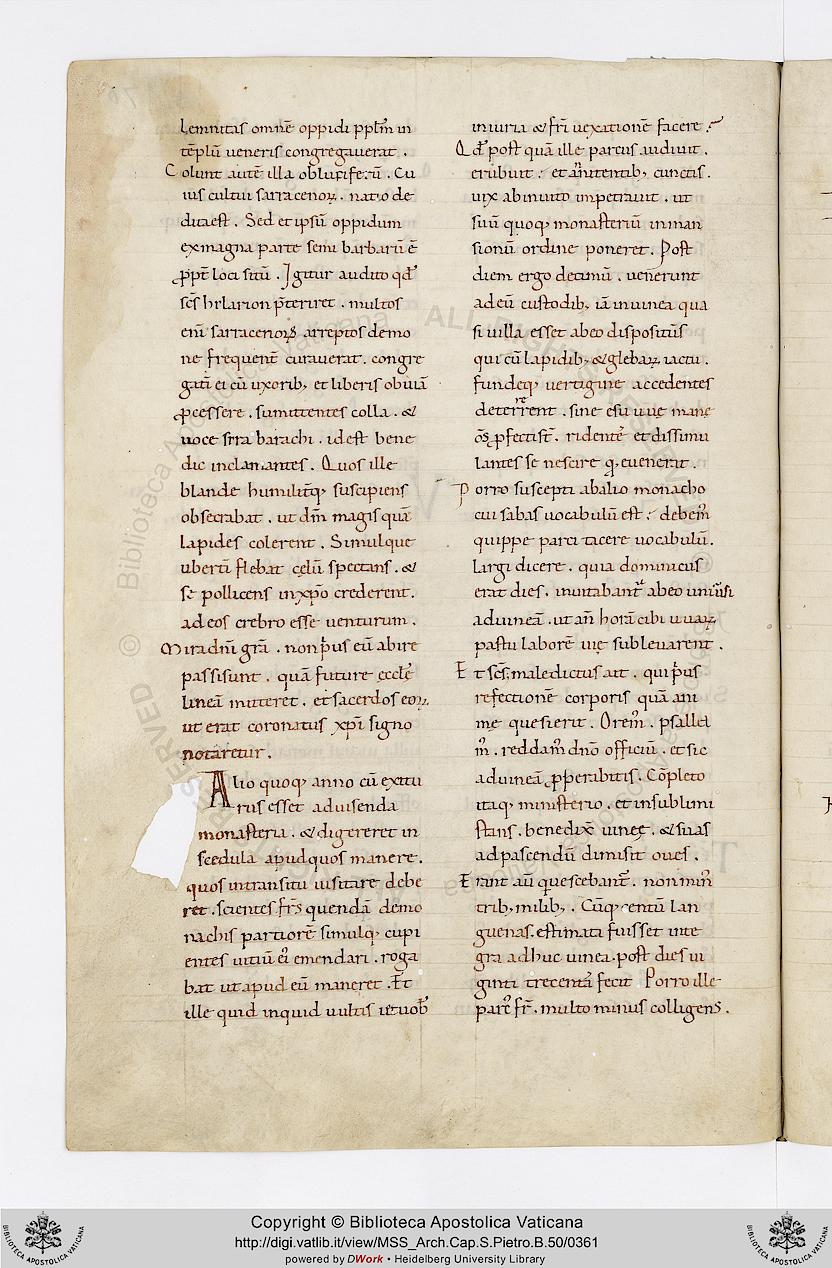 lemnitas omnē oppidi ppłm in
tēplū ueneris congregauerat .
Colunt autē illa ob lucife᷒rū . Cu
ius cultui sarracenoꝝ . natio de
dita est . Sed et ipsū oppidum
ex magna parte semi barbarū ē
ꝓpt̄ loci sitū . Igitur audito qđ
sc̄s hilarion p̄teriret . multos
eni sarracenorꝝ arreptos demo
ne frequent̄ curauerat . congre
gati ei cū uxorib; et liberis obuiā
ꝓcessere . sumittentes colla . &
uoce sira barachi . id est bene
dic inclamantes . Quos ille
blande humilitq; suscipiens
obsecrabat . ut dm̄ magis quā
lapides colerent . Simulque
ubertī flebat cęlū spectans . &
se pollicens in xp̄o crederent .
ad eos crebro esse uenturum .
Mira dnī gr̄a . non p̄us eū abire
passi sunt . quā future ęcclę
lineā mitteret . et sacerdos eoꝝ.
ut erat coronatus xp̄i signo
notaretur .
Alio quoq; anno cū exitu
rus esset ad uisenda
monasteria . & digereret in
scedula apud quos manere .
quos in transitu uisitare debe
ret . scientes fr̄s quendā demo
nachis partiorē simulq; cupi
entes uitiū ei emendari . roga
bat ut apud eū maneret . Et
ille quid inquid uultis uł uob̄
iniuria & fr̄i uexationē facere ?
Qđ post quā ille parcus audiuit .
erubuit : et annitentib; cunctis .
uix ab inuito impetrauit . ut
suū quoq; monasteriū in man
sionū ordine poneret . Post
diem ergo decimū . uenerunt
ad eū custodib; iā in uinea qua
si uilla esset ab eo dispositus
qui cū lapidib; & glebaꝝ iactu .
fundeq; uertigine accedentes
deterrent . sine esu uuę mane
om̄s ꝓfecti st̄ . ridente et dissimu
lantes se nescire qͥ euenerit .
Porro suscepti ab alio monacho
cui sabas uocabulū est : debem᷒
quippe parci tacere uocabulū .
largi dicere . quia dominicus
erat dies . inuitabant᷒ ab eo uniuͥsi
ad uineā . ut an̄ horā cibi uuaꝝ
pastu laborē uię subleuarent .
Et sc̄s . maledictus ait . qui p̄us
refectionē corporis quā ani
mę quesierit . Orem᷒ . psallā
m᷒ . reddam᷒ dnō officiū . et sic
ad uineā ꝓperabitis . Cōpleto
itaq; ministerio . et in sublimi
stans . benedix̄ uineę . & suas
ad pascendū dimisit oues .
Erant aū que scebant᷒ . non min᷒
trib; milib; . Cūq; centū lan
guenas . estimata fuisset inte
gra adhuc uinea . post dies ui
ginti trecentā fecit Porro ille
parc᷒ fr̄ . multo minus colligens .
Copyright © Biblioteca Apostolica Vaticana
http://digi.vatlib.it/view/MSS_Arch.Cap.S.Pietro.B.50/0361
powered by DWork • Heidelberg University Library